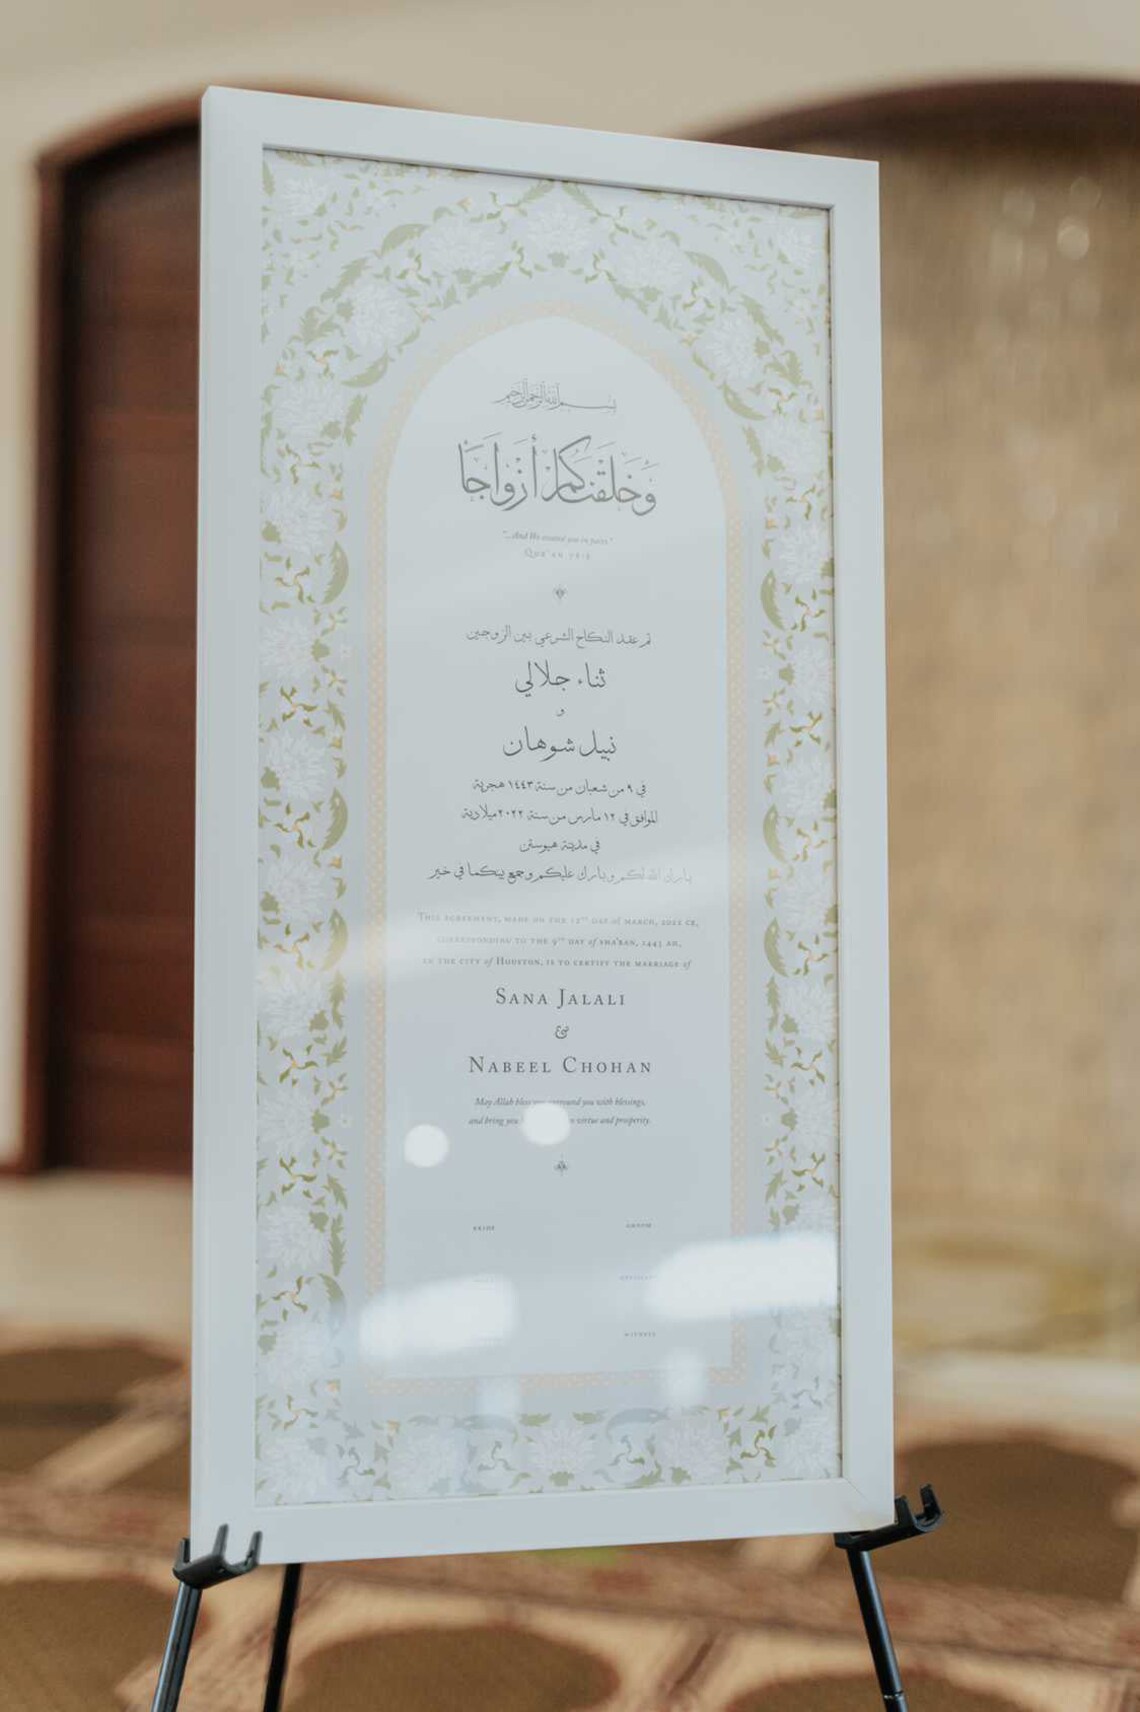 بسم الله الرحمن الرحيم
وَخَلَقْنَاكُمْ أَزْوَاجًا
"...And We created you in pairs."
Qur'an 78:8
تم عقد النكاح الشرعي بين الزوجين
ثناء جلالي
و
نبيل شوهان
في ٩ من شعبان من سنة ١٤٤٣ هجرية
الموافق في ١٢ مارس من سنة ٢٠٢٢ ميلادية
في مدينة هيوستن
بارك الله لكم وبارك عليكم وجمع بينكما في خير
This agreement, made on the 12th day of March, 2022 CE,
corresponding to the 9th day of Sha'ban, 1443 AH,
in the city of Houston, is to certify the marriage of
Sana Jalali
&
Nabeel Chohan
May Allah bless you, surround you with blessings,
and bring you virtue and prosperity.
BRIDE GROOM
WITNESS